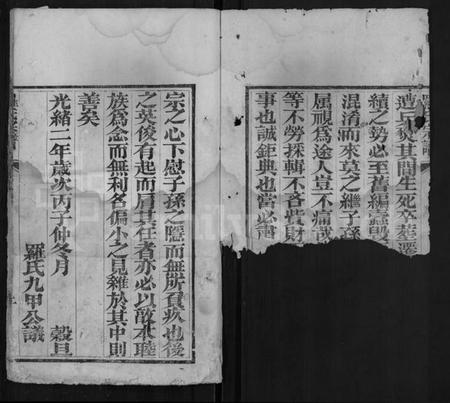 遭兵燹其間生死卒葬湮
續之勢必至舊編蠹毀
混淆而來莫之繼子孫
屈視為途人豈不痛哉
等不勞採輯不吝貲財
事也誠鉅典也當必肅
宗之心下慰子孫之隱而無所負疚也後
之英俊有起而肩其任者亦必以敬本睦
族為念而無利名偏小之見雜於其中則
善矣
光緒二年歲次丙子仲冬月 穀旦
羅氏九甲公議